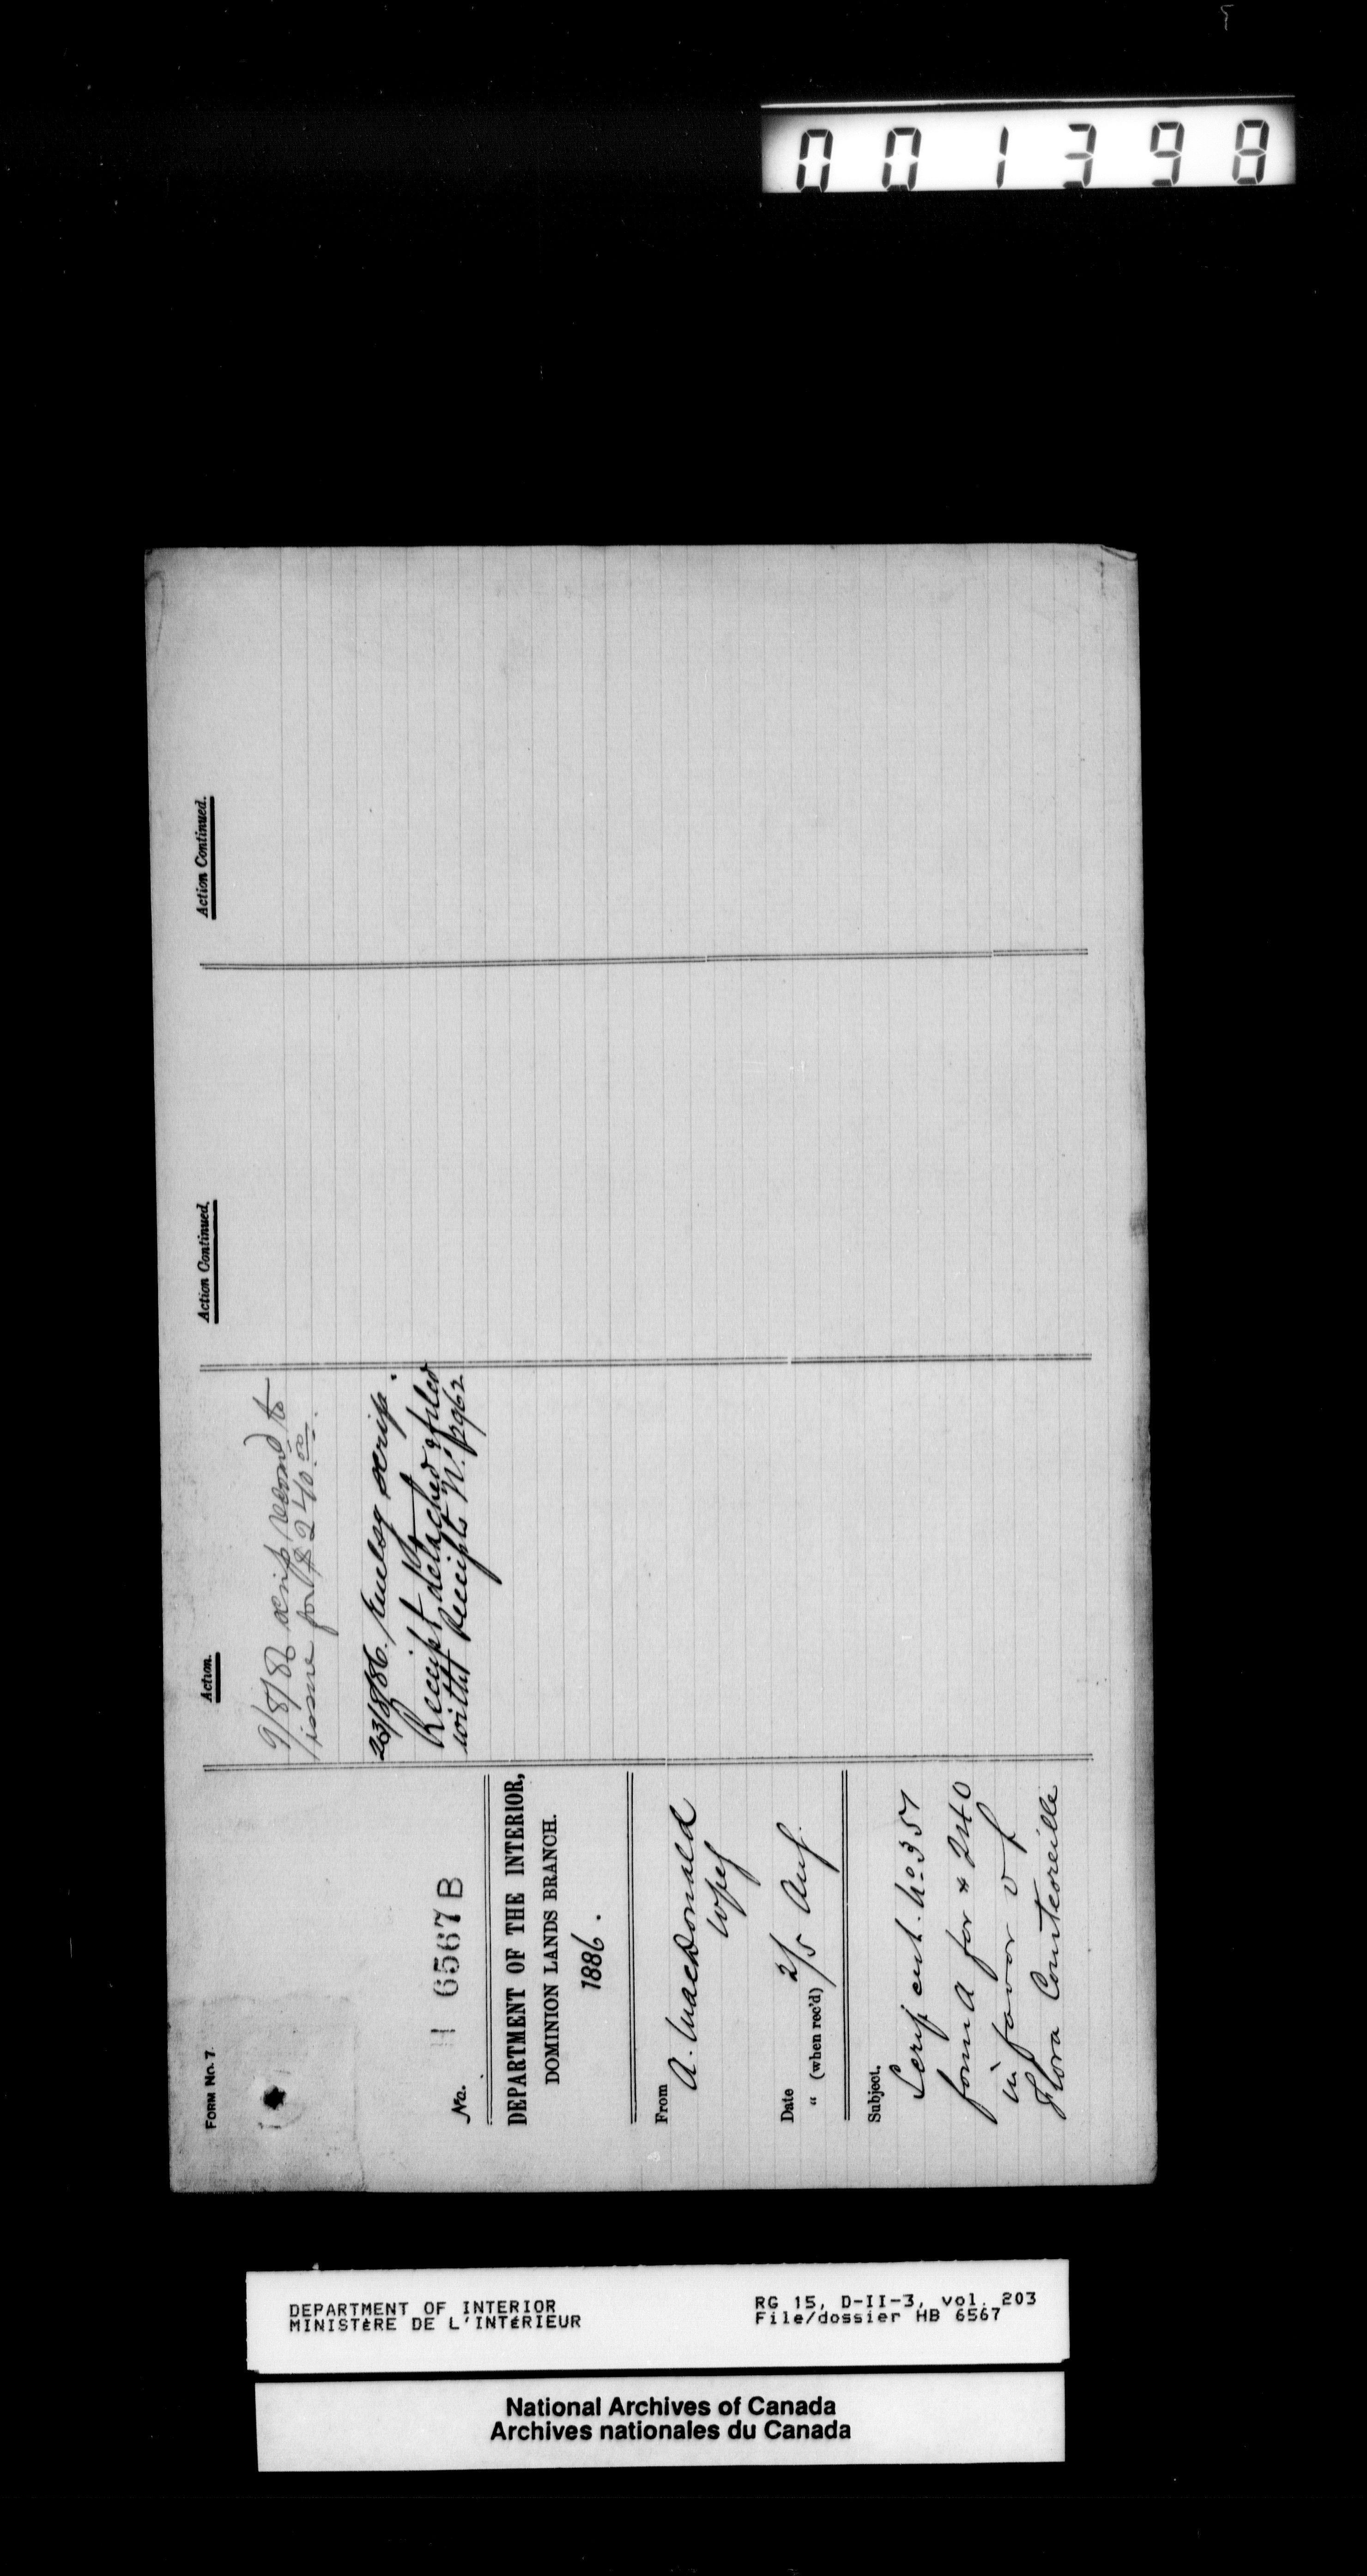 001398
FORM No. 7.
No. H 6567 B
DEPARTMENT OF THE INTERIOR,
DOMINION LANDS BRANCH.
1886.
From A. MacDonald
Wpeg
Date 2/5 Aug.
" (when rec'd)
Subject.
Scrip cert. No 357
form A for $240
in favor of
Flora Courteoreille
Action.
9/8/86 scrip recomd to
issue for $240.00.
23/8/86. scrip.
Receipt detached & filed
with Receipts No. 2962
Action Continued.
Action Continued.
DEPARTMENT OF INTERIOR
MINISTÈRE DE L'INTÉRIEUR
RG 15, D-II-3, vol. 203
File/dossier HB 6567
National Archives of Canada
Archives nationales du Canada